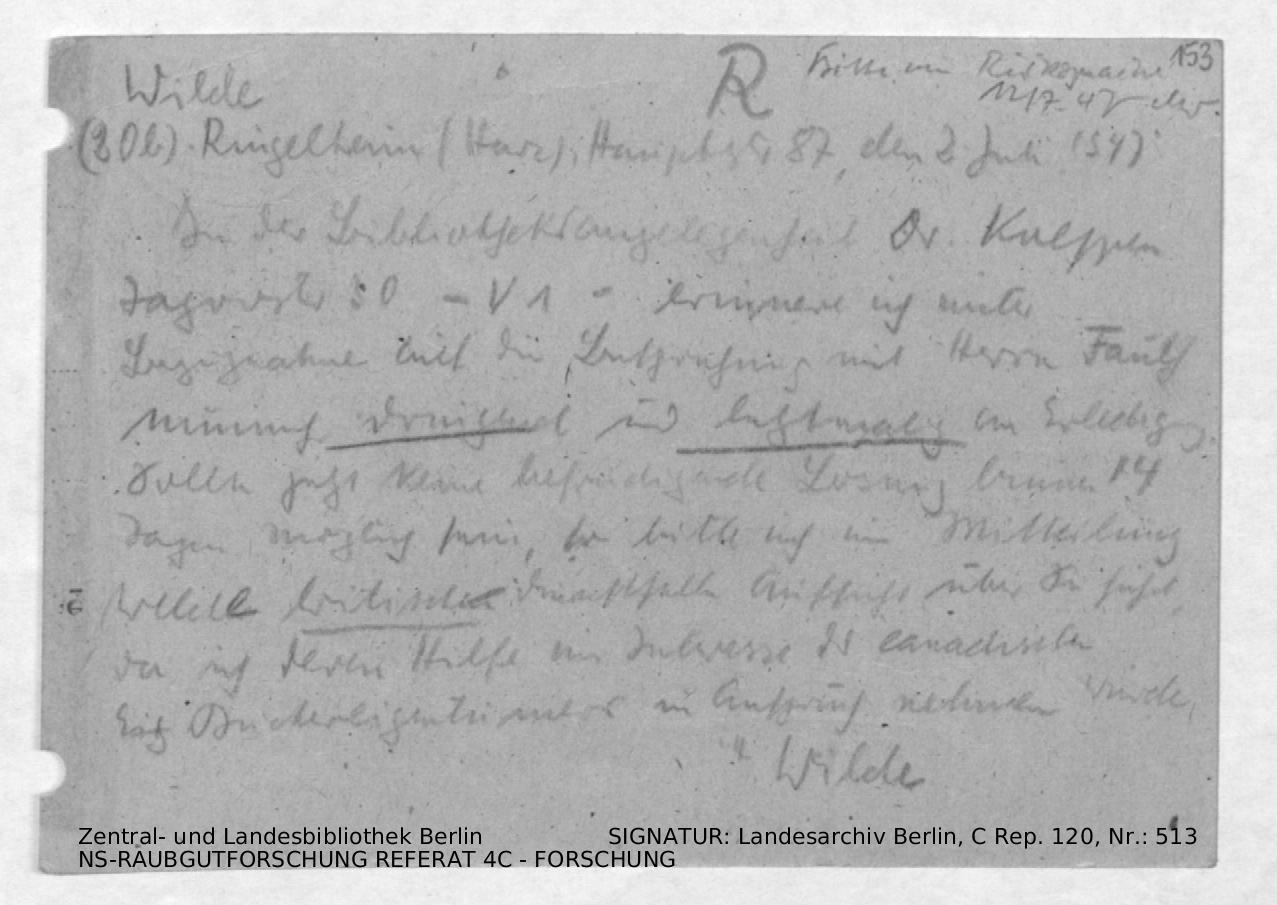 153
R Bitte um Rücksprache
12/7. 47
Wilde
(20b) Ringelheim (Harz), Hauptstr 87, den 2 Juli 1947
In der Bibliotheksangelegenheit Dr. Kaeppen
Jagowstr 30 – V 1 – erinnere ich unter
Bezugnahme auf die Besprechung mit Herrn Fauth
nunmehr dringend und letztmalig an Erledigg.
Sollte jetzt keine befriedigende Lösung binnen 14
Tagen möglich sein, so bitte ich um Mitteilung
welche britische Dienststelle Aufsicht über Sie führt,
da ich deren Hilfe im Interesse des canadischen
Büchereigentümers in Anspruch nehmen würde,
Wilde
Zentral- und Landesbibliothek Berlin SIGNATUR: Landesarchiv Berlin, C Rep. 120, Nr.: 513
NS-RAUBGUTFORSCHUNG REFERAT 4C - FORSCHUNG